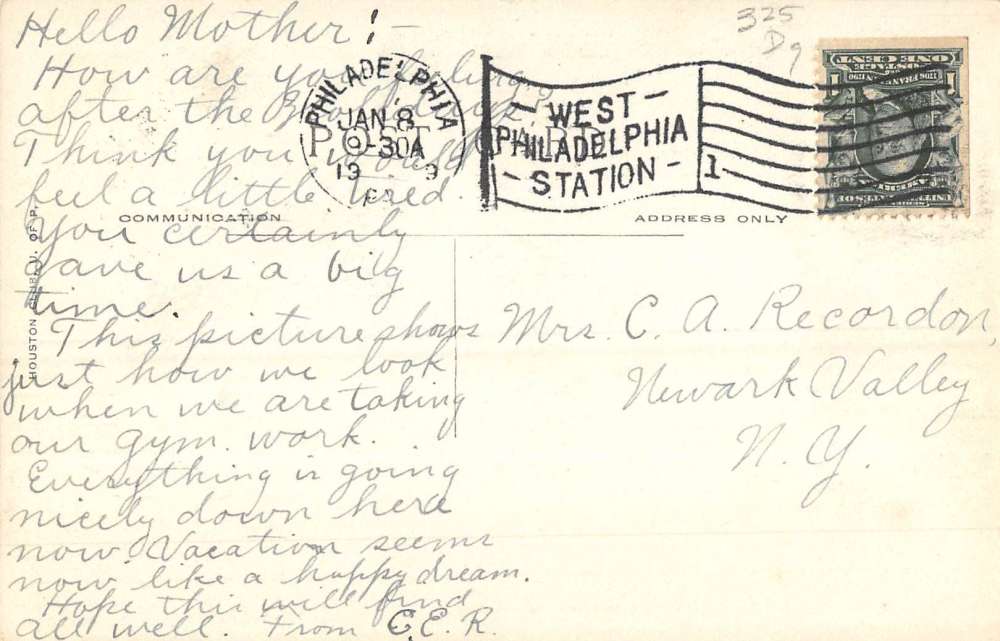 Hello Mother!-
How are you feeling
after the
Think you would
feel a little tired.
You certainly
gave us a big
time.
This picture shows
just how we look
when we are taking
our gym. work.
Everything is going
nicely down here
now. Vacation seems
now like a happy dream.
Hope this will find
all well. From C.E.R.
COMMUNICATION
HOUSTON CLUB, U. OF P.
POST CARD
PHILADELPHIA
JAN 8
9-30A
19 9
PA
WEST
PHILADELPHIA
STATION
1
325
D9
ONE CENT
ADDRESS ONLY
Mrs. C. A. Recordon,
Newark Valley
N. Y.